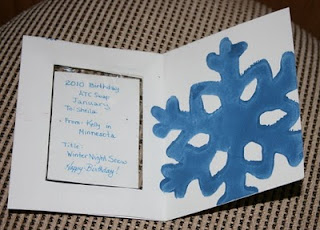 2010 Birthday
ATC Swap
January
To: Sheila
- From - Kelly in
Minnesota
Title:
Winter Night Snow
Happy Birthday!